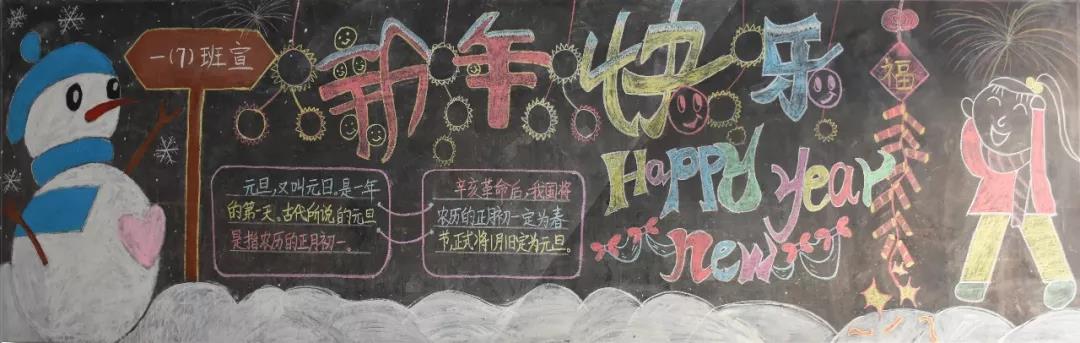 一(7)班宣
新年快乐
福
Happy year
new
元旦,又叫元日,是一年
的第一天、古代所说的元旦
是指农历的正月初一。
辛亥革命后,我国将
农历的正月初一定为春
节,正式将1月1日定为元旦。